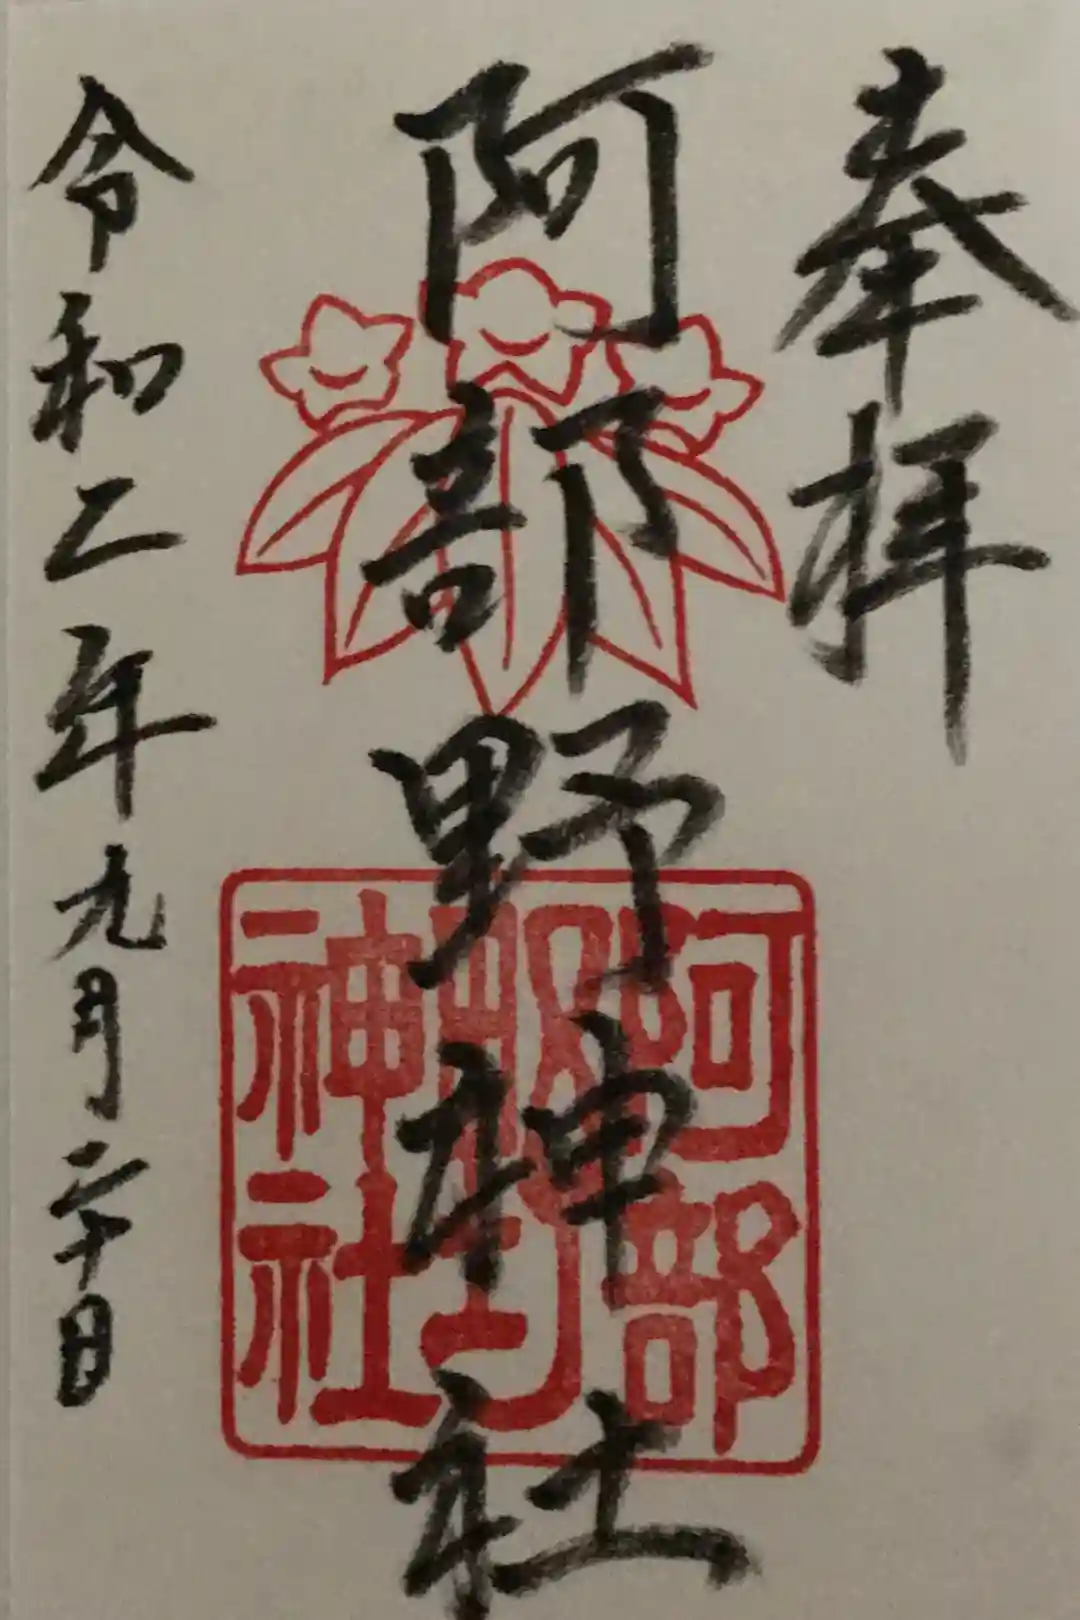 奉拝
阿部野神社
阿部野神社
令和二年九月二十日